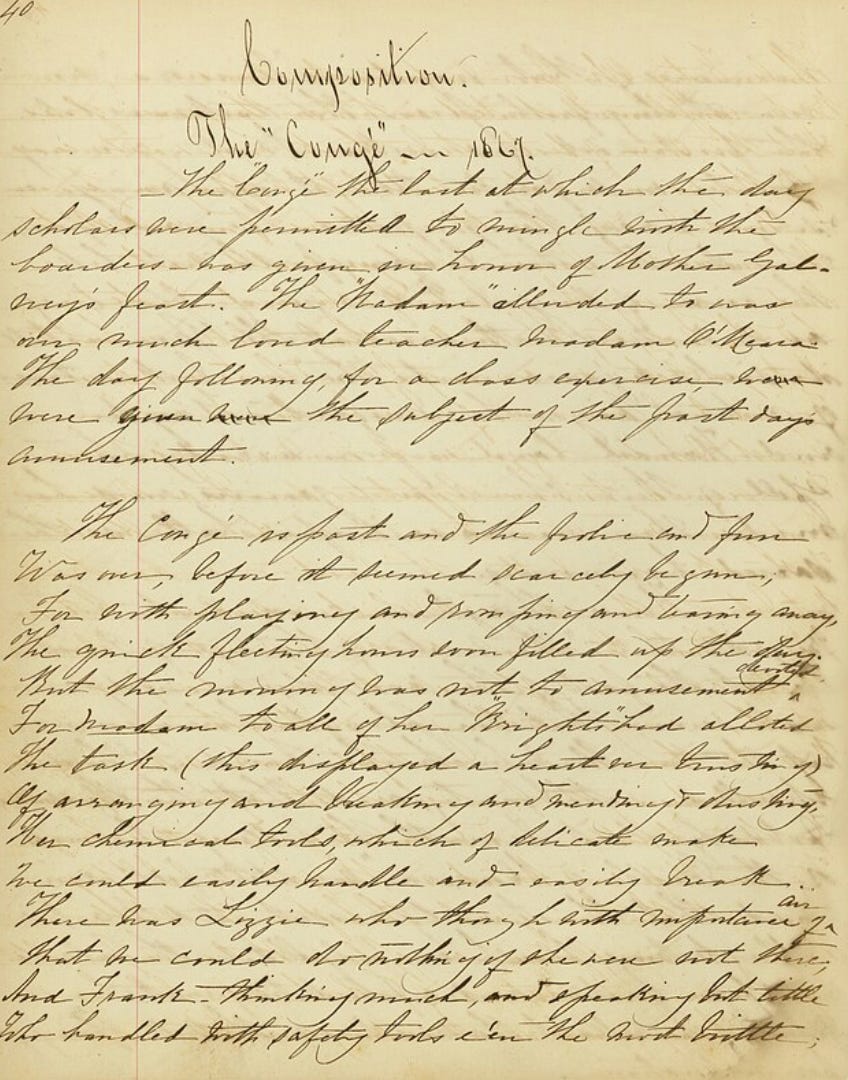 40
Composition.
The "Congé" — in 1867.
— The "Congé" the last at which the day
scholars were permitted to mingle with the
boarders – was given in honor of Mother Gal-
wey's feast. The "Madam" alluded to was
our much loved teacher Madam O'Meara.
The day following, for a class exercise,
were given the subject of the past day's
amusement.
The Congé is past and the frolic and fun
Was over, before it seemed scarcely begun;
For with playing and romping and tearing away,
The quick fleeting hours soon filled up the day.
devoted
But the morning was not to amusement ^
For Madam to all of her "Brights" had alloted
The task (this displayed a heart trusting)
Of arranging and breaking and mending & dusting,
Her chemical tools, which of delicate make
We could easily handle and – easily break..
air
There was Lizzie who though with importance ^
That we could do nothing if she were not there;
And Frank – thinking much, and speaking but little
Who handled with safety tools e'en the most brittle;